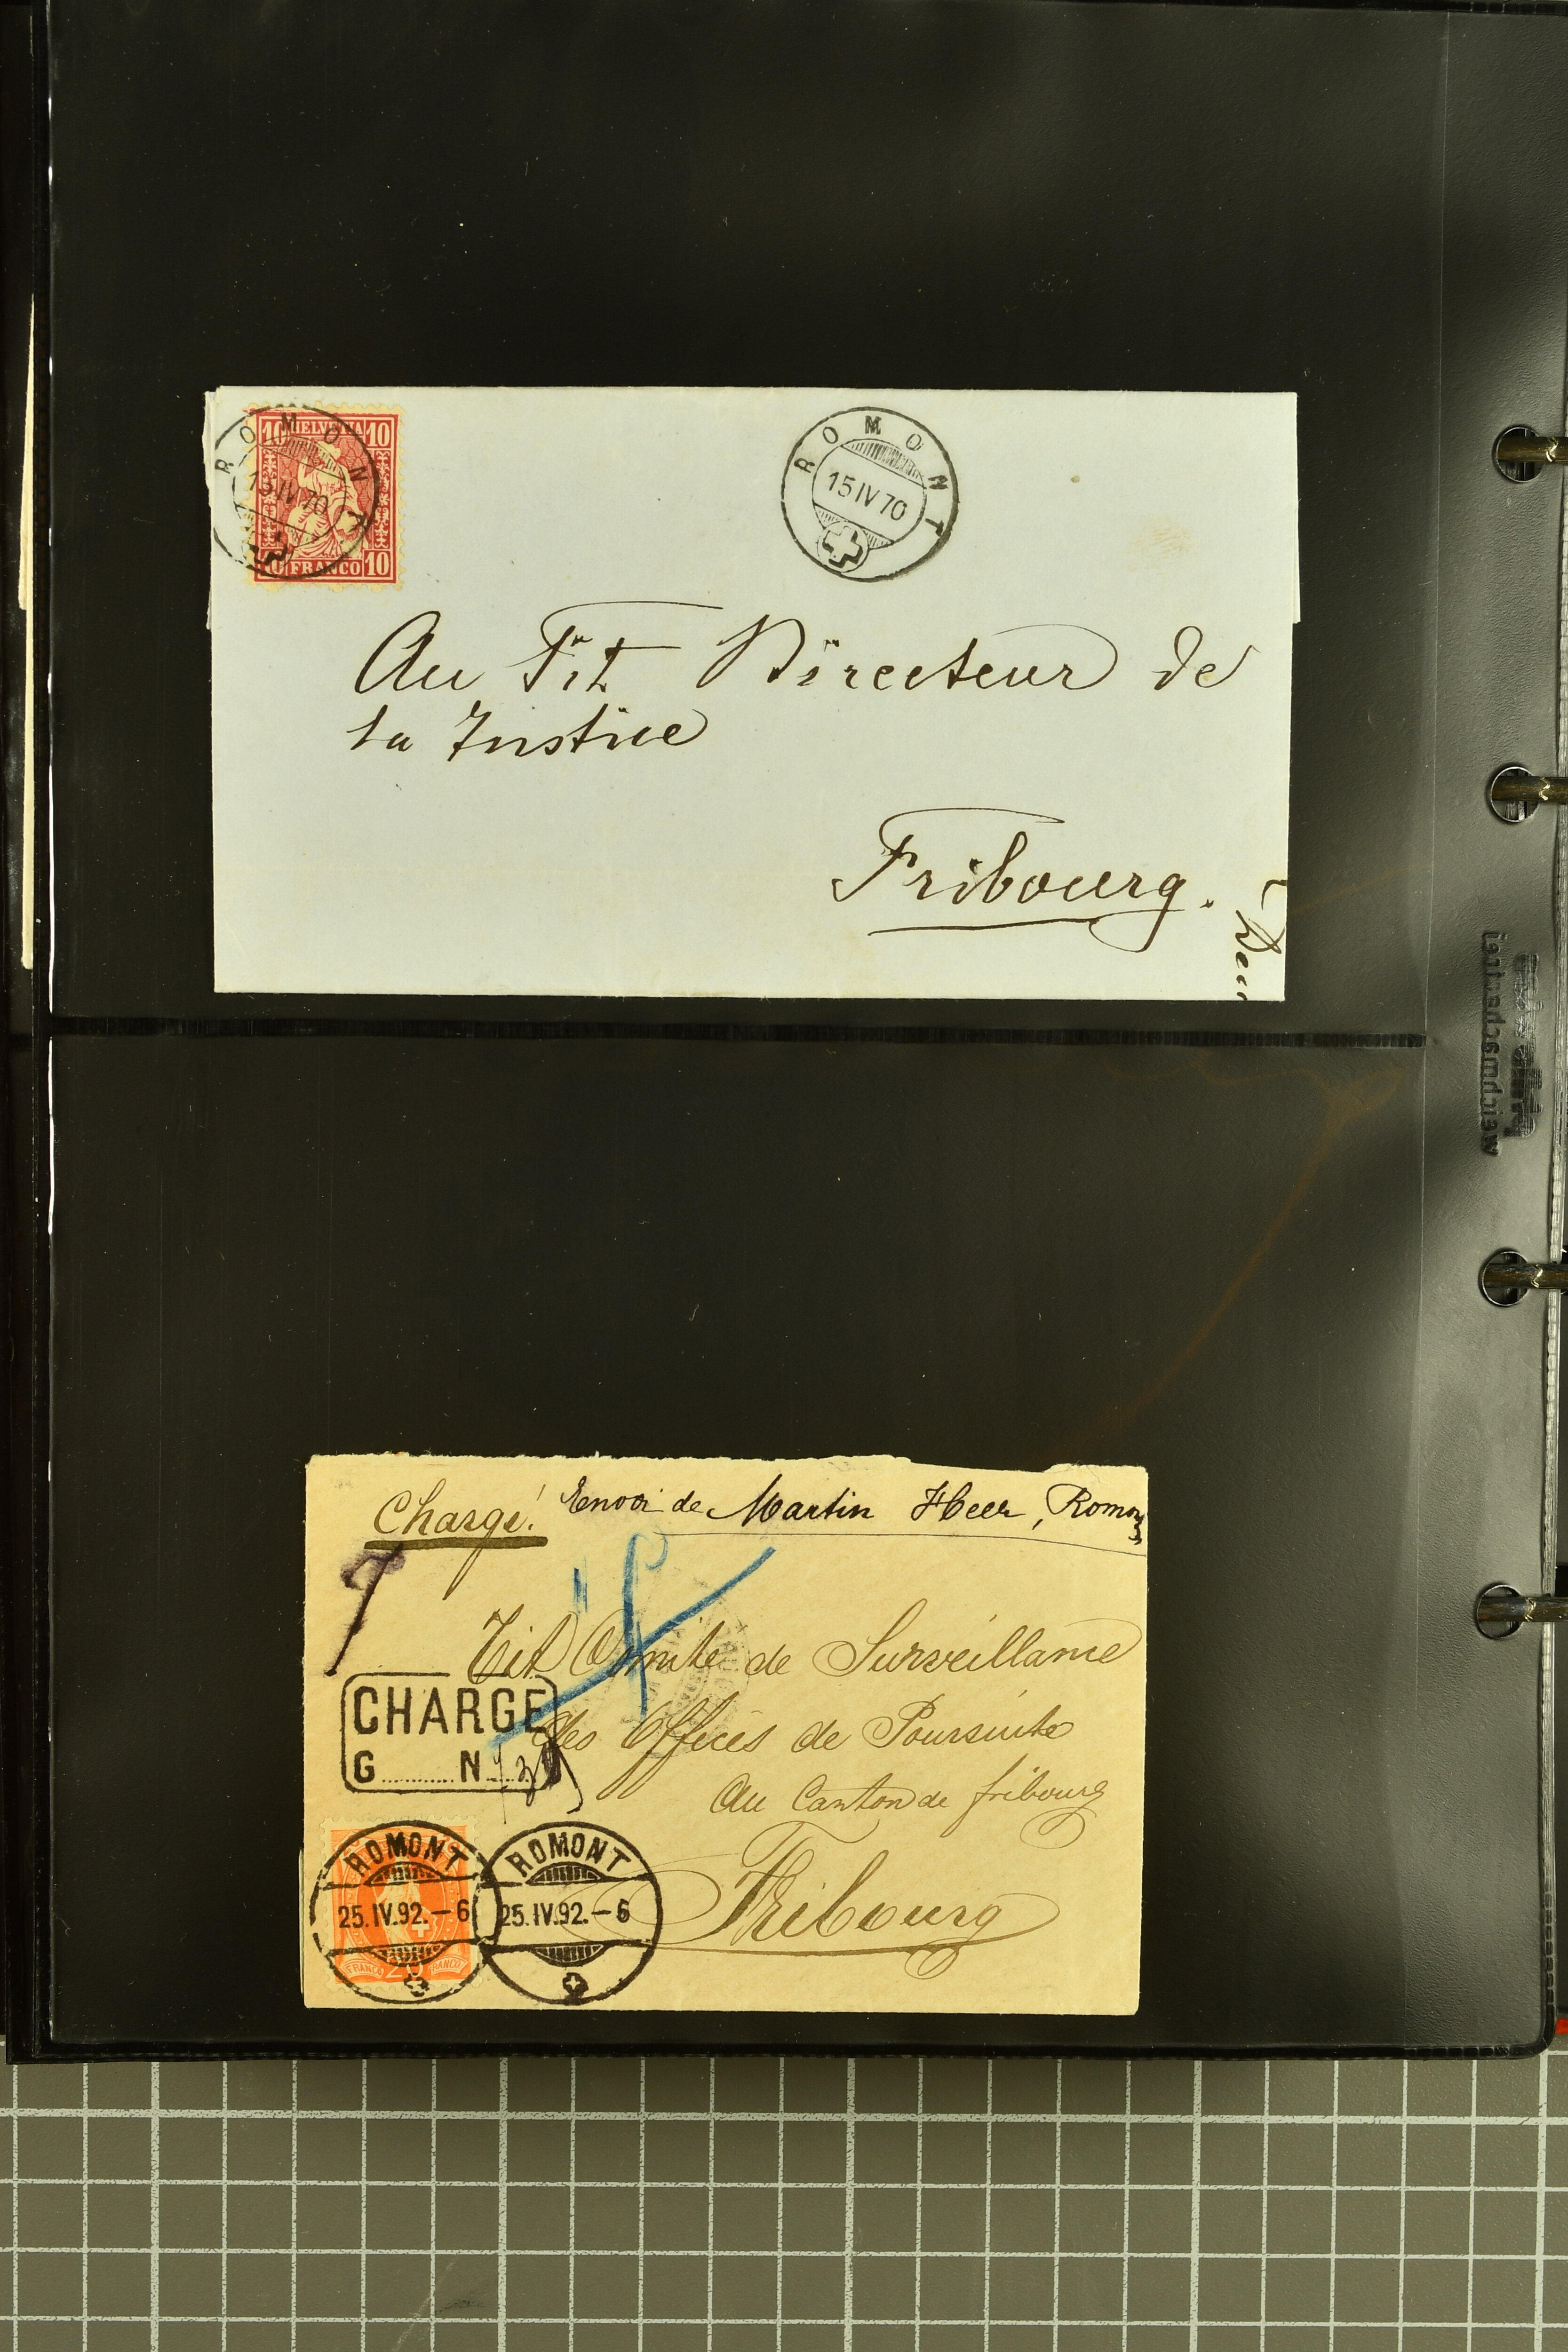 10 HELVETIA 10
ROMONT
15 IV 70
10 FRANCO 10
ROMONT
15 IV 70
Au Tit Directeur de
la Justice
Fribourg.
Chargé! Envoi de Martin Heer, Romont
Tit Comité de Surveillance
CHARGÉ
des Offices de Poursuite
G. N.
au Canton de fribourg
ROMONT
25.IV.92.-6
FRANCO FRANCO
ROMONT
25.IV.92.-6
Fribourg